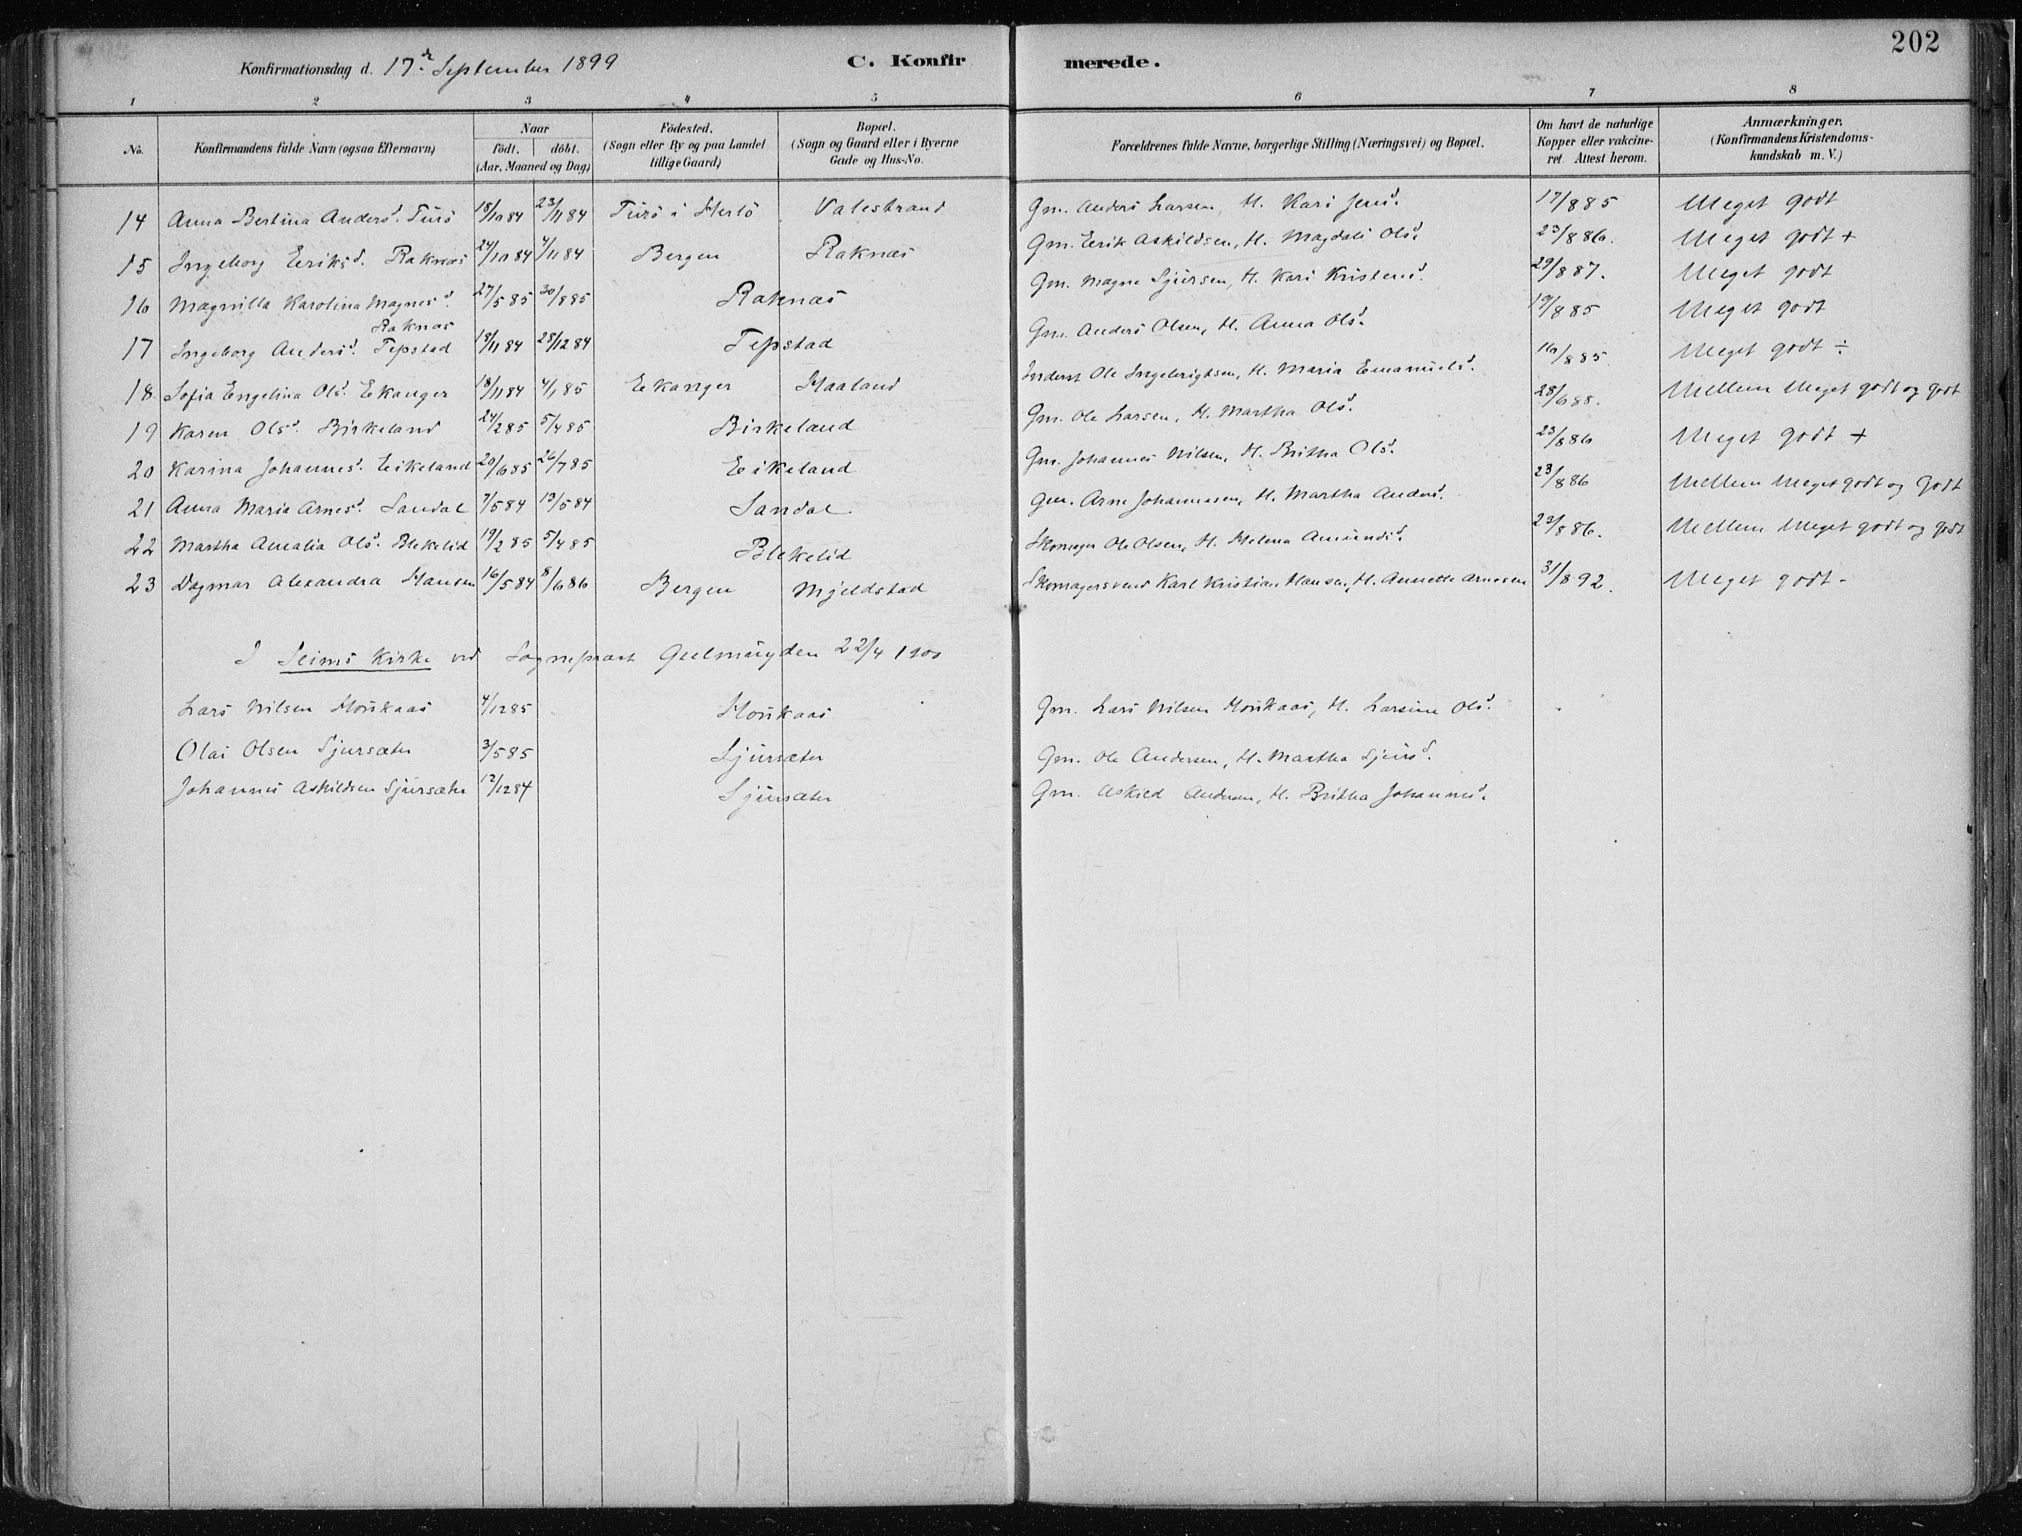 202
Konfirmationsdag d. 17de September 1899 C. Konfir merede.
1 2 3 4 5 6 7 8
No. Konfirmandens fulde Navn (ogsaa Efternavn) Naar Født. døbt. (Aar, Maaned og Dag) Fødested. (Sogn eller By og paa Landet tillige Gaard) Bopæl. (Sogn og Gaard eller i Byerne Gade og Hus-No. Forældrenes fulde Navne, borgerlige Stilling (Næringsvei) og Bopæl. Om havt de naturlige Kopper eller vakcineret. Attest herom. Anmærkninger. (Konfirmandens Kristendomskundskab m. V.)
14 Anna Bertina Andersd. Turö 18/10 84 23/11 84 Turö i Herlö Valestrand Gm. Anders Larsen, H. Kari Jensd. 17/8 85 Meget godt
15 Ingeborg Eeriksd. Raknæs 24/10 84 4/11 84 Bergen Raknæs Gm. Eerik Askildsen, H. Magdali Olsd. 23/8 86. Meget godt +
16 Magnilla Karolina Magnesd. Raknæs 27/5 85 30/8 85 Raknæs Gm. Magne Sjursen, H. Kari Kristensd. 29/8 87. Meget godt
17 Ingeborg Andersd. Tepstad 19/11 84 28/12 84 Tepstad Gm. Anders Olsen, H. Anna Olsd. 19/8 85 Meget godt
18. Sofia Engelina Olsd. Eekanger 18/11 84 4/1 85 Eekanger Haaland Inderst Ole Ingebrigtsen, H. Maria Emanuelsd. 16/8 85. Meget godt ÷
19 Karen Olsd. Birkeland 24/2 85 5/4 85 Birkeland Gm. Ole Larsen, H. Martha Olsd. 28/6 88. Mellem Meget godt og godt
20 Karina Johannesd. Eikeland 20/6 85 26/7 85 Eikeland Gm. Johannes Nilsen, H. Britha Olsd. 23/8 86 Meget godt +
21 Anna Maria Arnesd. Sandal 7/5 84 19/5 84 Sandal. Gm. Arne Johannesen, H. Martha Andersd. 23/8 86 Mellem Meget godt og Godt
22 Martha Amalia Olsd. Blekelid 19/2 85 5/4 85 Blekelid Skomager Ole Olsen, H. Helena Amundsd. 23/8 86. Mellem Meget godt og godt
23 Dagmar Alexandra Hansen 16/5 84 8/6 86 Bergen Mjeldstad Skomagersvend Karl Kristian Hansen, H. Annette Arnesen 31/8 92. Meget godt -
I Seims Kirke ved Sogneprest Geelmuyden 22/4 1900
Lars Nilsen Houkaas 4/12 85 Houkaas Gm. Lars Nilsen Houkaas, H. Larsine Olsd.
Olai Olsen Sjursæter 3/5 85 Sjursæter Gm. Ole Andersen, H. Martha Sjursd.
Johannes Askildsen Sjursæter 12/12 84 Sjursæter Gm. Askild Andersen, H. Britha Johannesd.